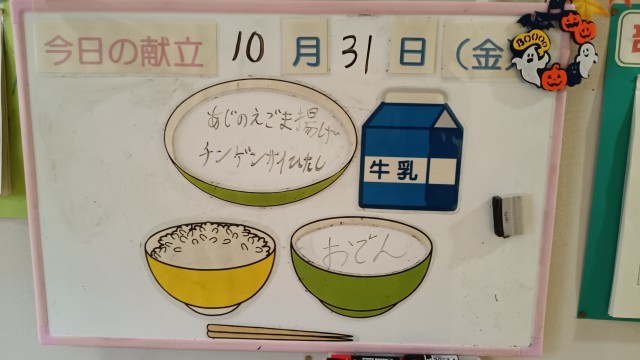 今日の献立 10月31日(金)
BOOOO
あじのえごま揚げ
チンゲンサイひたし
牛乳
おでん